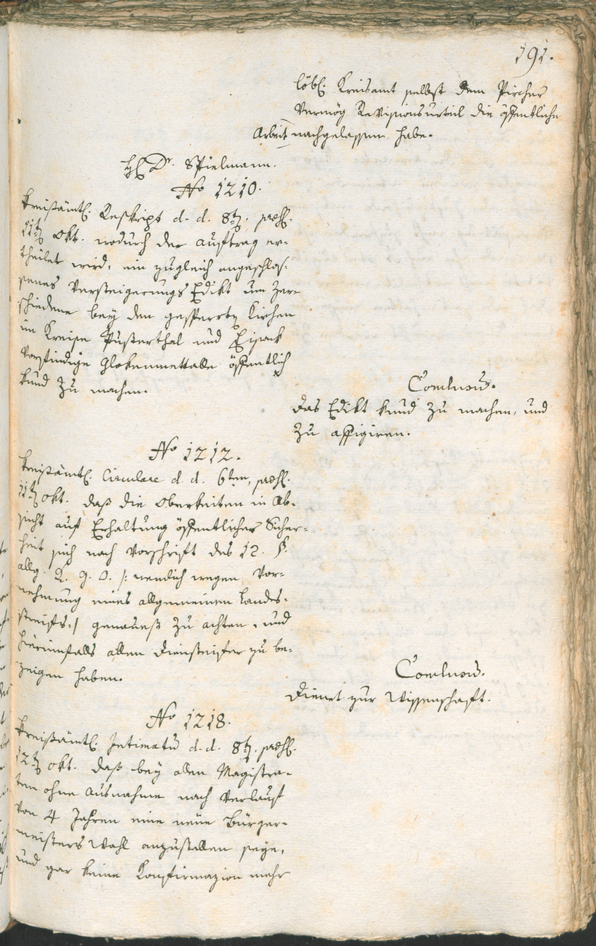 191.
löbl. Kreisamt selbst dem Pircher
vermög Revisionsurteil die öffentliche
Arbeit nachgelassen habe.
H. Dr. Spielmann.
No 1210.
Kreisämtl. Reskript d. d. 8t, praes.
11t Okt. wodurch der Auftrag er-
theilet wird, ein zugleich angeschlos-
senes Versteigerungs Edikt um ver-
schiedene bey den gesperrten Kirchen
im Kreise Pusterthal und Eisack
vorfindige Glokenmettalle öffentlich
kund zu machen.
Conclusum.
Das Edikt kund zu machen, und
zu affigiren.
No 1212.
Kreisämtl. Circulare d. d. 6ten, praes.
11t Okt. daß die Oberkeiten in Ab-
sicht auf Erhaltung öffentlicher Sicher-
heit sich nach Vorschrift des 12. §.
allg. K. G. O. /: nemlich wegen Vor-
nehmung eines allgemeinen Lands-
streifs :/ genauest zu achten, und
hierinfalls allen Diensteifer zu be-
zeigen haben.
Conclusum.
Dienet zur Wissenschaft.
No 1218.
Kreisämtl. Intimatum d. d. 8t, praes.
12t Okt. daß bey allen Magistra-
ten ohne Ausnahme nach Verlauf
von 4 Jahren eine neue Bürger-
meisters Wahl anzustellen seye,
und gar keine Konfirmazion mehr